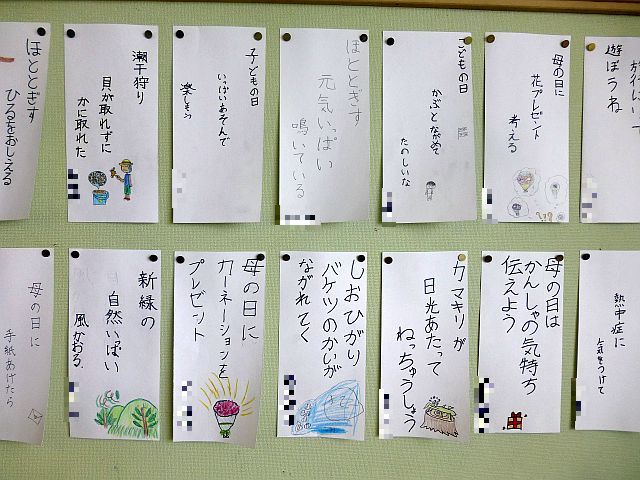 ほととぎす
ひるをおしえる
潮干狩り
貝が取れずに
かに取れた
子どもの日
いっぱいあそんで
楽しもう
ほととぎす
元気いっぱい
鳴いている
こどもの日
かぶとながめて
たのしいな
母の日に
花プレゼント
考える
遊ぼうね
母の日に
手紙あげたら
新緑の
自然いっぱい
風かおる
母の日に
カーネーションを
プレゼント
しおひがり
バケツのかいが
ながれてく
カマキリが
日光あたって
ねっちゅうしょう
母の日は
かんしゃの気持ち
伝えよう
熱中症に
気をつけて